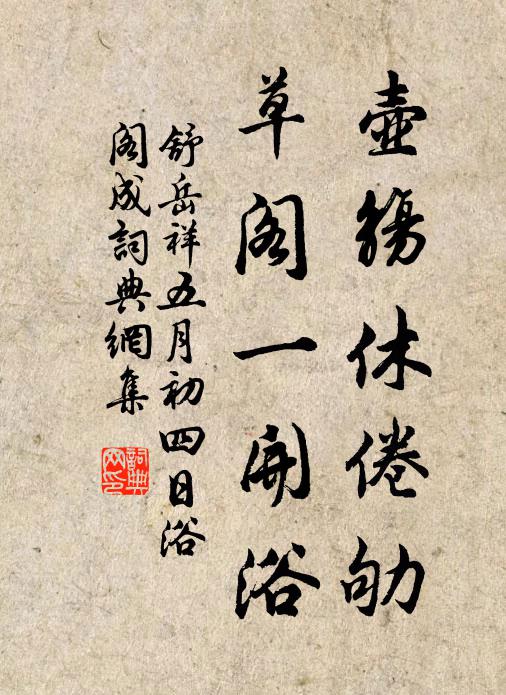 壺觴休倦劬
草阁一開浴
舒岳祥五月初四日浴
阁成詞典網集
詞典网印